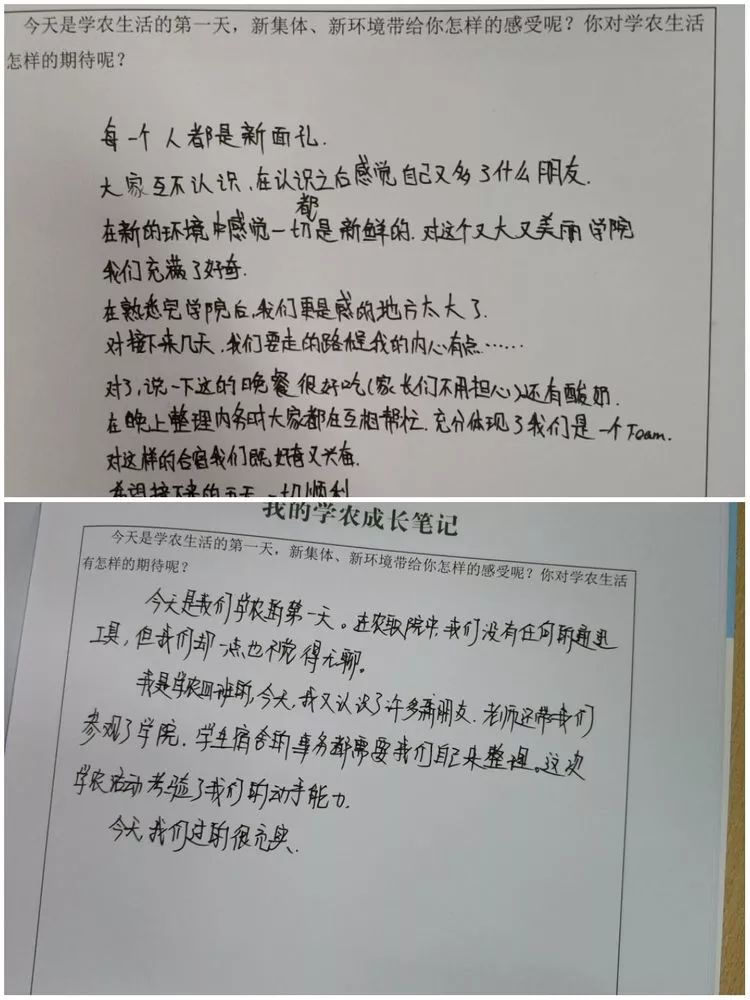 今天是学农生活的第一天，新集体、新环境带给你怎样的感受呢？你对学农生活
怎样的期待呢？
每一个人都是新面孔.
大家互不认识,在认识之后感觉自己又多了什么朋友.
在新的环境中感觉一切都是新鲜的.对这个又大又美丽学院
我们充满了好奇.
在熟悉完学院后,我们更是感的地方太大了.
对接下来几天,我们要走的路程我的内心有点……
对了,说一下这的晚餐很好吃(家长们不用担心)还有酸奶.
在晚上整理内务时大家都在互相帮忙.充分体现了我们是一个Team.
对这样的合宿我们既好奇又兴奋.
希望接下来的五天一切顺利
我的学农成长笔记
今天是学农生活的第一天，新集体、新环境带给你怎样的感受呢？你对学农生活
有怎样的期待呢？
今天是我们学农的第一天。在农职院中,我们没有任何的通迅
工具，但我们却一点也不觉得无聊。
我是学农四班的,今天,我又认识了许多新朋友.老师还带我们
参观了学院.学生宿舍的事务都需要我们自己来整理。这次
学农活动考验了我们的动手能力.
今天我们过的很充实.